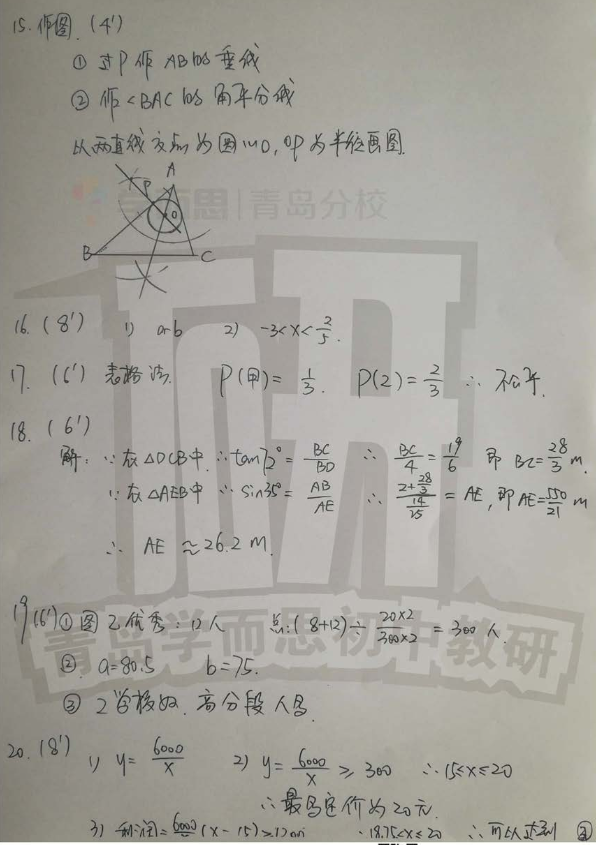 15. 作图. (4')
① 过P作AB的垂线
② 作<BAC的角平分线
以两直线交点为圆心O, OP为半径画圆.
A
P
学而思|青岛分校
O
B
C
16. (8') 1) a-b 2) -3<x<2/5.
17. (6') 表格法. P(甲)=1/3. P(乙)=2/3 ∴ 不公平.
18. (6')
解: ∵在△DCB中. ∴tan72°=BC/BD ∴ BC/4=19/6 即 BC=28/3 m.
∵在△AEB中 ∴ sin35°=AB/AE ∴ (2+28/3)/(14/25)=AE, 即AE=550/21 m
∴ AE ≈26.2 m.
19(6') ①图乙优秀: 12人 总:(8+12)÷(20×2)/(300×2)=300人.
青岛学而思初中教研
② a=80.5 b=75.
③ 2学校好. 高分段人多.
20. (8') 1) y=6000/x 2) y=6000/x ≥ 300 ∴15≤x≤20
∴最高定价为20元.
3) 利润=6000/x(x-15)≥1200 ∴18.75≤x≤20 ∴可以达到